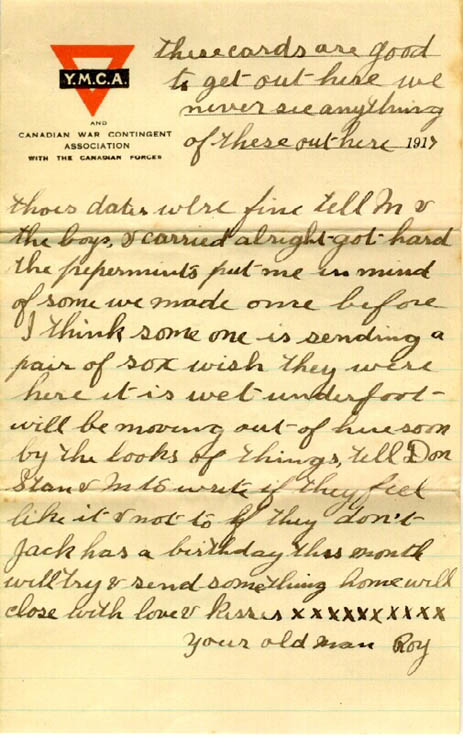 Y.M.C.A.
AND
CANADIAN WAR CONTINGENT
ASSOCIATION
WITH THE CANADIAN FORCES
these cards are good
to get out here we
never see anything
of these out here 1917
thoes dates were fine tell M &
the boys, & carried alright-got-hard
the pepermints put me in mind
of some we made once before
I think some one is sending a
pair of sox wish they were
here it is wet underfoot-
will be moving out-of here soon
by the looks of things, tell Don
Stan & M to write if they feel
like it & not to if they don't
Jack has a birthday this month
will try & send something home will
close with love & kisses xxxxxxxxxx
your old man Roy